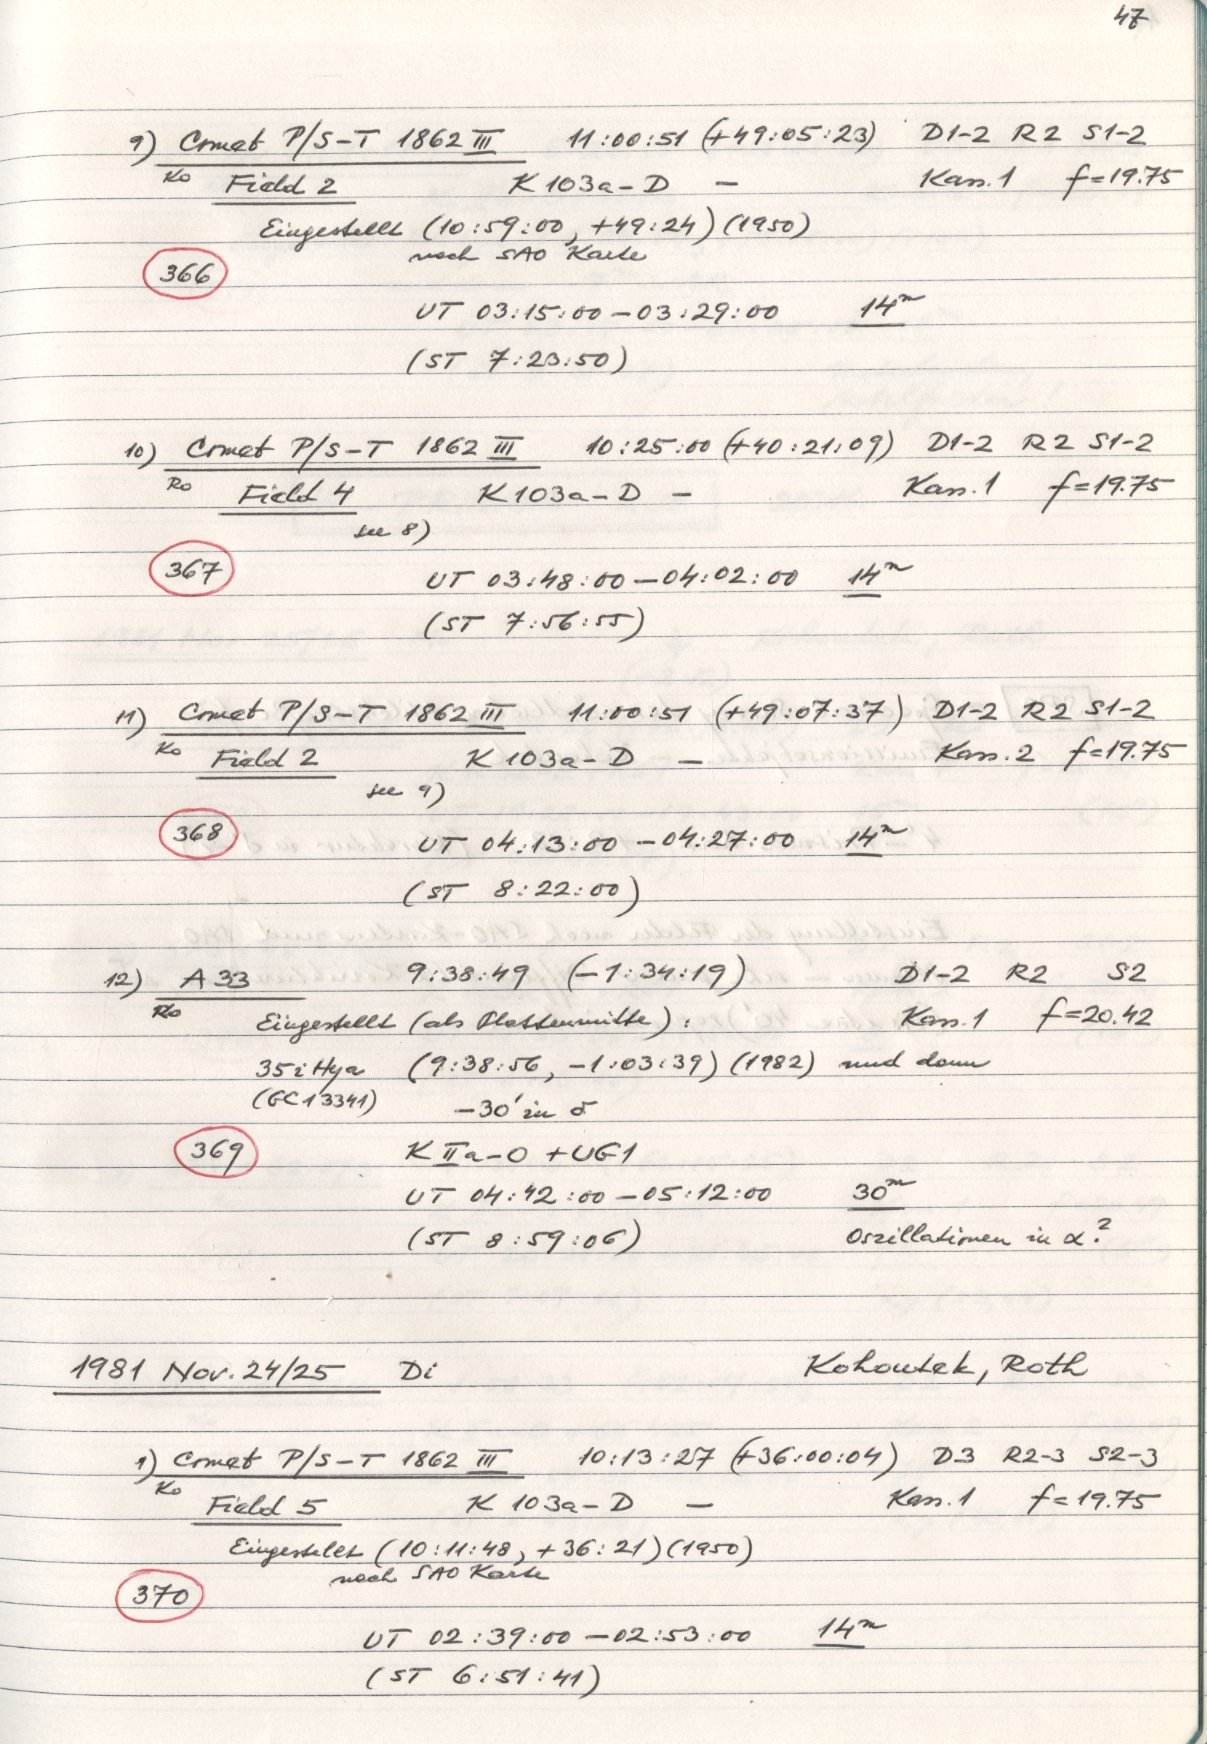 47
9) Comet P/S-T 1862 III 11:00:51 (+49:05:23) D1-2 R2 S1-2
Ko Field 2 K 103a-D — Kass.1 f=19.75
Eingestellt (10:59:00, +49:24) (1950)
nach SAO Karte
366
UT 03:15:00 - 03:29:00 14m
(ST 7:23:50)
10) Comet P/S-T 1862 III 10:25:00 (+40:21:09) D1-2 R2 S1-2
Ro Field 4 K 103a-D — Kass.1 f=19.75
see 8)
367
UT 03:48:00 - 04:02:00 14m
(ST 7:56:55)
11) Comet P/S-T 1862 III 11:00:51 (+49:07:37) D1-2 R2 S1-2
Ko Field 2 K 103a-D — Kass.2 f=19.75
see 9)
368
UT 04:13:00 - 04:27:00 14m
(ST 8:22:00)
12) A 33 9:38:49 (-1:34:19) D1-2 R2 S2
Ro Eingestellt (als Plattenmitte): Kass.1 f=20.42
35 i Hya (9:38:56, -1:03:39) (1982) und dann
(GC 13341) -30' in δ
369
K IIa-O + UG1
UT 04:42:00 - 05:12:00 30m
(ST 8:59:06) Oszillationen in α?
1981 Nov. 24/25 Di Kohoutek, Roth
1) Comet P/S-T 1862 III 10:13:27 (+36:00:04) D3 R2-3 S2-3
Ko Field 5 K 103a-D — Kass.1 f=19.75
Eingestellt (10:11:48, +36:21) (1950)
nach SAO Karte
370
UT 02:39:00 - 02:53:00 14m
(ST 6:51:41)